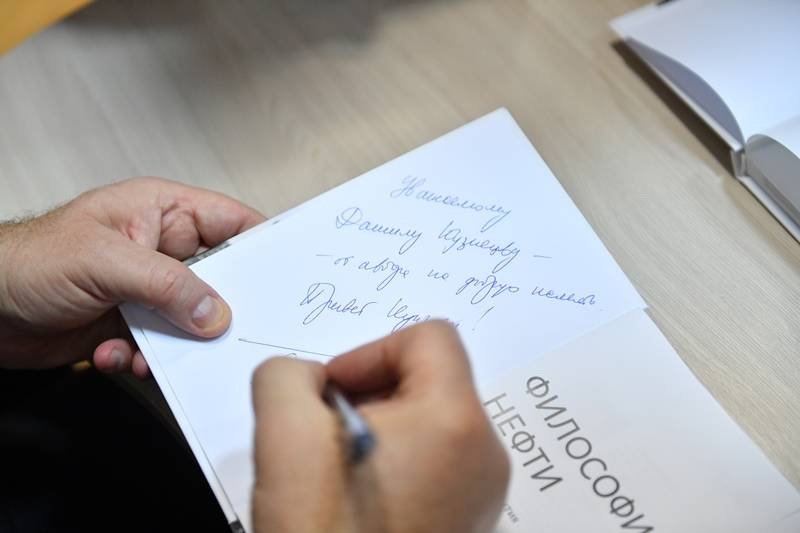 Уважаемому
Даниилу Кузнецову –
– от автора на добрую память.
Привет
!
ФИЛОСОФИ
НЕФТИ